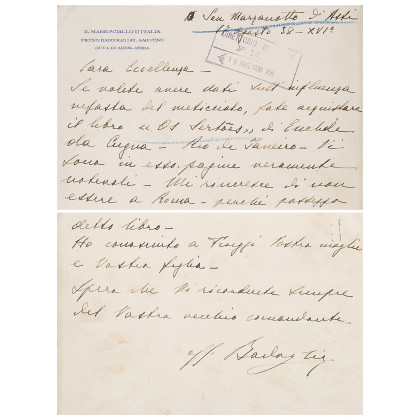 IL MARESCIALLO D'ITALIA
PIETRO BADOGLIO DEL SABOTINO
DUCA DI ADDIS ABEBA
San Marzanotto d'Asti
Agosto 38-XVI°
Cara Eccellenza-
Se volete avere dati sull'influenza
nefasta del meticciato, fate acquistare
il libro "Os Sertões", di Euclide
da Cugna - Rio de Janeiro - Vi
sono in esso pagine veramente
notevoli - Mi rincresce di non
essere a Roma - perché posseggo
detto libro-
Ho conosciuto a Fiuggi Vostra moglie
e Vostra figlia-
Spero che Vi ricordiate sempre
del Vostro vecchio comandante.
aff Badoglio